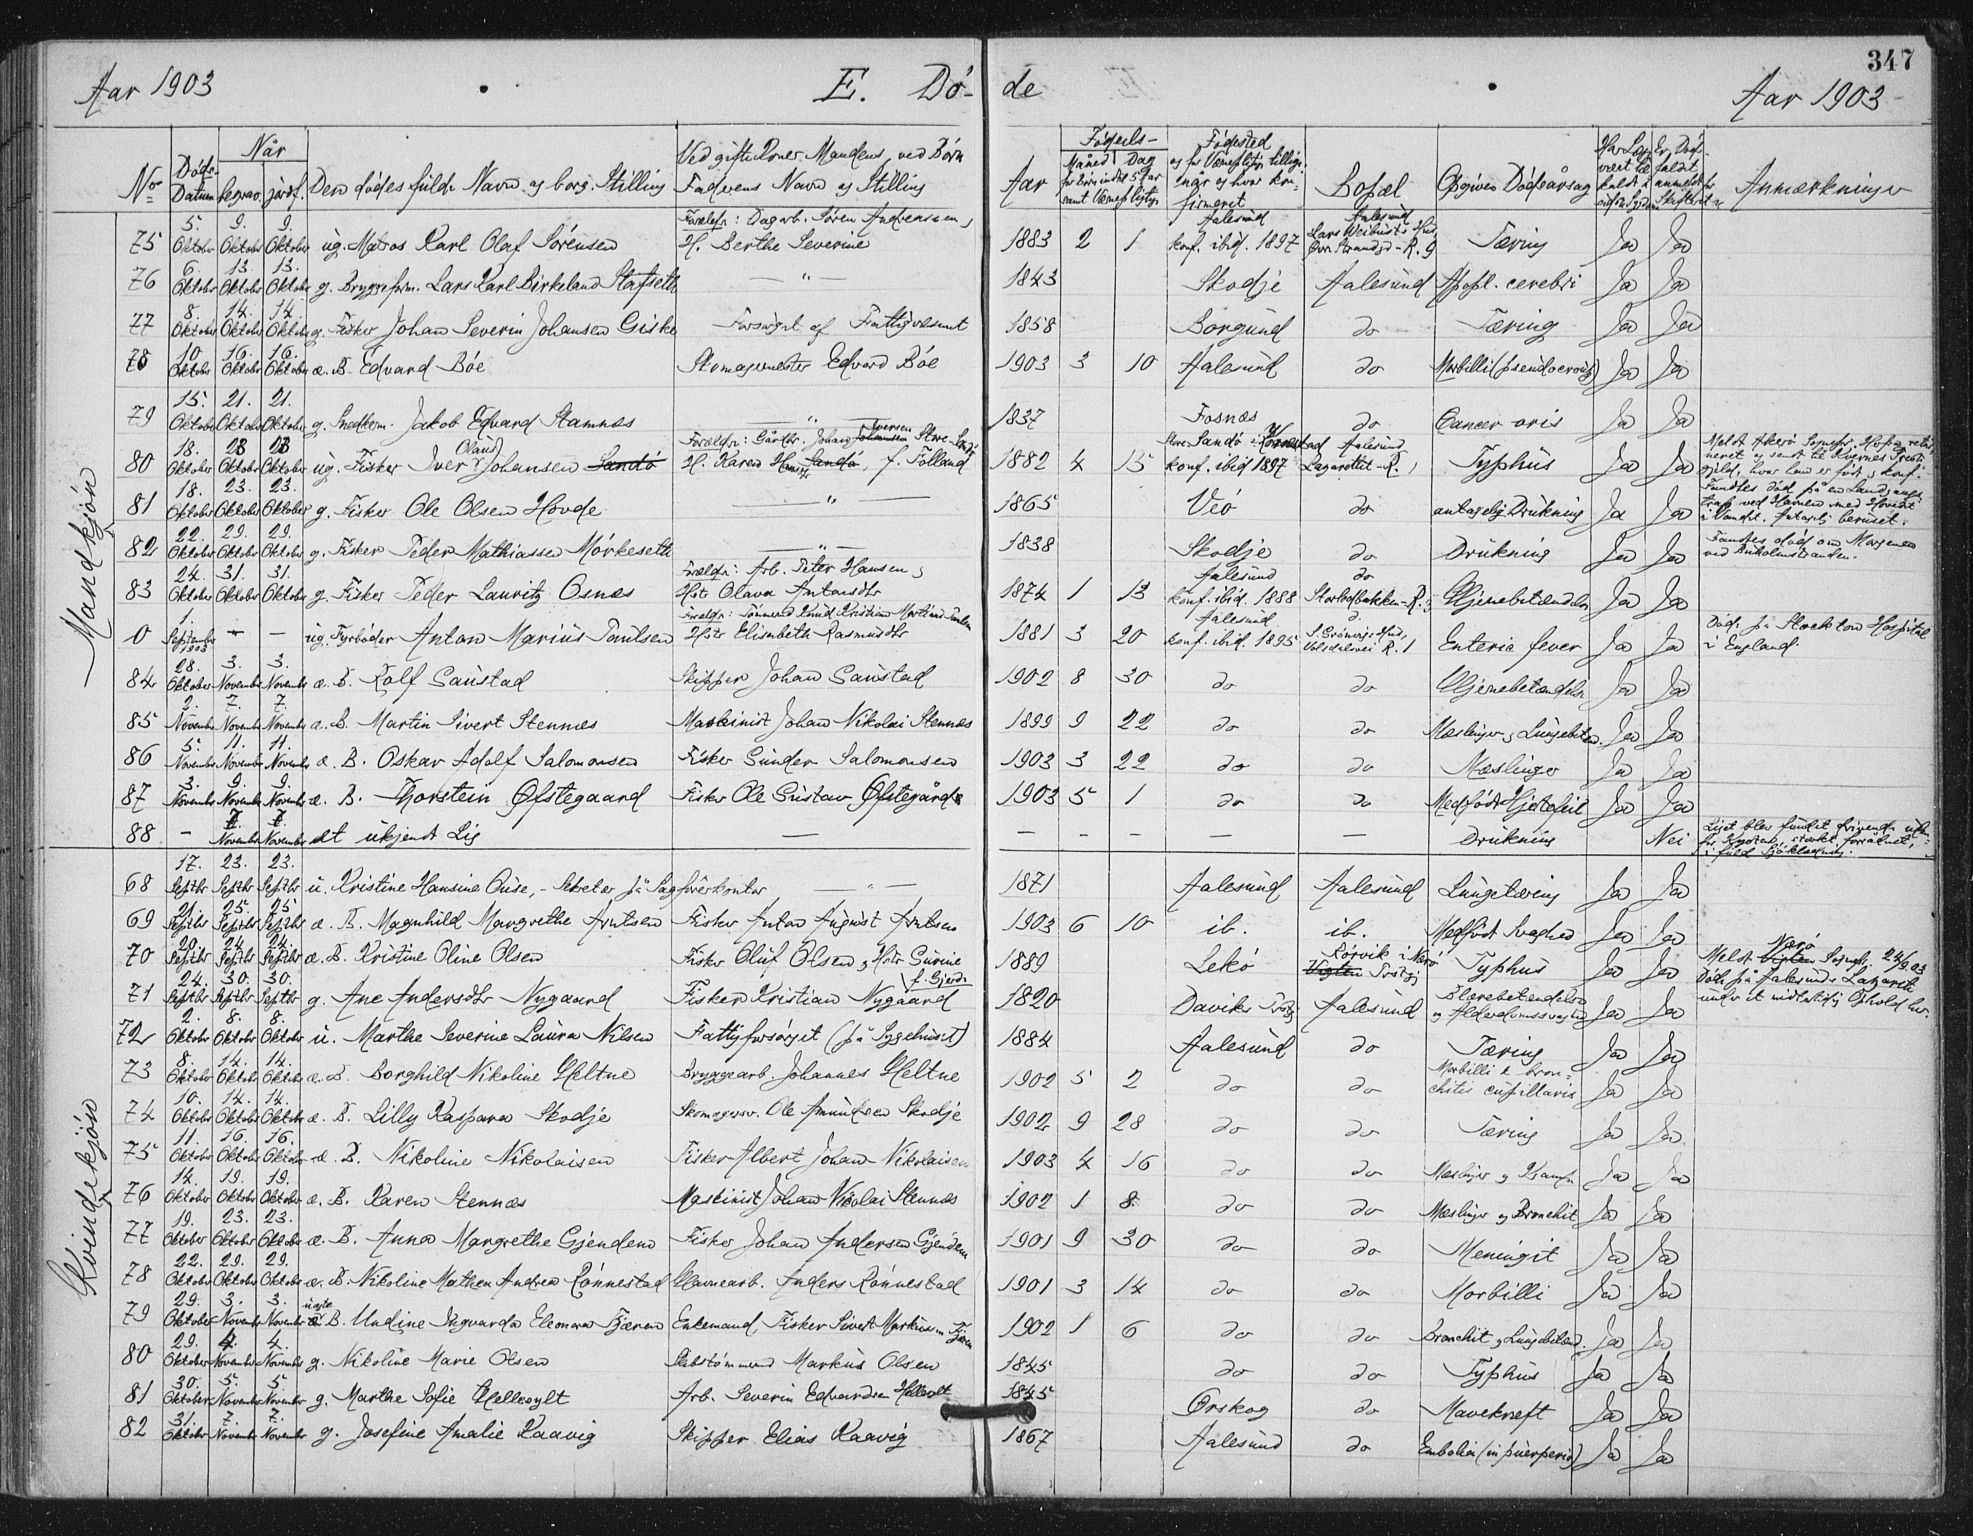 347
Aar 1903 E. Dö- de Aar 1903
No Döds-Datum Når begrav. jordf. Den dödes fulde Navn og borg. Stilling Ved gifte Koner Mandens, ved Börn Faderens Navn og Stilling Aar Födsels- Måned Dag Födested Bopæl Opgiven Dödsårsag Anmærkninger
Mandkjön
75 5. Oktober 9. Oktober 9. Oktober ug. Matros Karl Olaf Sörensen Forældre: Dagarb. Sören Andreassen, H. Berthe Severine 1883 2 1 Aalesund konf. ibid. 1897 Aalesund Tæring Ja Ja
76 6. Oktober 13. Oktober 13. Oktober g. Bryggeform. Lars Karl Birkeland Stafseth — " — 1843 Skodje Aalesund Apopl. cerebri Ja Ja
77 8. Oktober 14. Oktober 14. Oktober g. Fisker Johan Severin Johansen Giske Forsörget af Fattigvæsenet 1858 Borgund do Tæring Ja Ja
78 10. Oktober 16. Oktober 16. Oktober æ. B. Edvard Böe Skomagermester Edvard Böe 1903 3 10 Aalesund do Morbilli (pseudocroup) Ja Ja
79 15. Oktober 21. Oktober 21. Oktober g. Snedkerm. Jakob Edvard Stamnæs — " — 1837 Fosnæs do Cancer oris Ja Ja
80 18. Oktober 23 Oktober 23 Oktober ug. Fisker Iver Olaus Johansen Sandö Forældre: Gårdbr. Johan Johansen Iversen Store-Sandö H. Karen Hansdtr Sandö, f. Tolland 1882 4 15 Store Sandö i konf. ibid 1897 Aalesund Lazarettet-R. 1 Typhus Ja Ja Meldt Akerö Sognepr. og sendt til Kvernes Præstegjeld, hvor han er född og konf.
81 18. Oktober 23. Oktober 23. Oktober g. Fisker Ole Olsen Hovde — " — 1865 Veö do antagelig Drukning Ja Ja Fandtes död på en Landgangstrap ved Havnen med Hovedet i Vandet. Antagelig beruset.
82 22. Oktober 29. Oktober 29. Oktober g. Fisker Peder Mathiassen Mörkeseth — " — 1838 Skodje do Drukning Ja Ja Fandtes död om Morgenen ved Buholmstranden.
83 24. Oktober 31. Oktober 31. Oktober g. Fisker Peder Lauritz Osnæs Forældre: Arb. Peter Hansen, Hstr Olava Antonsdtr 1874 1 13 Aalesund konf. ibid. 1888 do Storlodbakken-R. 3 Hjernebetændelse Ja Ja
0 1. September 1903 — — ug. Fyrböder Anton Marius Paulsen Forældre: Tömmerm. Knud Kristian Martinus Paulsen Hstr Elisabeth Rasmusdtr 1881 3 20 Aalesund konf. ibid. 1895 R. 1 Enteric fever Ja Ja Död på Stockton Hospital i England.
84 28. Oktober 3. November 3. November æ. B. Rolf Saustad Skipper Johan Saustad 1902 8 30 do do Hjernebetændelse Ja Ja
85 2. November 7. November 7. November æ. B. Martin Sivert Stennæs Maskinist Johan Nikolai Stennæs 1899 9 22 do do Mæslinger og Lungebetæn. Ja Ja
86 5. November 11. November 11. November æ. B. Oskar Adolf Salomonsen Fisker Gunder Salomonsen 1903 3 22 do do Mæslinger Ja Ja
87 3. November 9. November 9. November æ. B. Thorstein Öfstegaard Fisker Ole Gustav Öfstegård 1903 5 1 do do Medfödt Hjertefeil Ja Ja
88 — 7. November 7. November et ukjendt Lig — — — — — — Drukning Nei Liget blev fundet drivende udenfor Kysten, stærkt forrådnet, i fuld Sjöklædning.
Kvindekjön
68 17. Septbr 23. Septbr 23. Septbr u. Kristine Hansine Ouse, - Sekretær på Sagförerkontor — " — 1871 Aalesund Aalesund Lungetæring Ja Ja
69 21. Septbr 25 Septbr 25 Septbr æ. B. Magnhild Margrethe Arntsen Fisker Anton August Arntsen 1903 6 10 ib. ib. Medfödt Svaghed Ja Ja
70 20. Septbr 24. Septbr 24. Septbr æ. B. Kristine Oline Olsen Fisker Oluf Olsen og Hstr Gurine f. Gjerde 1889 Lekö Rörvik i Nærö Vigten Prstgj Typhus Ja Ja Meldt Vigten Nærö Sognepr. 24/9 03 Döde på Aalesunds Lazaret under et midlertidig Ophold her.
71 24. Septbr 30. Septbr 30. Septbr g. Ane Andersdtr Nygaard Fisker Kristian Nygaard 1820 Daviks Prstgj Aalesund Blærebetændelse og Alderdomssvaghed Ja Ja
72 2. Oktober 8. Oktober 8. Oktober u. Marthe Severine Laura Nilsen Fattigforsörget (på Sygehuset) 1884 Aalesund do Tæring Ja Ja
73 8. Oktober 14. Oktober 14. Oktober æ. B. Borghild Nikoline Heltne Bryggearb. Johannes Heltne 1902 5 2 do do Morbilli & bronchitis capillaris Ja Ja
74 10. Oktober 14. Oktober 14. Oktober æ. B. Lilly Kaspara Skodje Skomagersv. Ole Amundsen Skodje 1902 9 28 do do Tæring Ja Ja
75 11. Oktober 16. Oktober 16. Oktober æ. B. Nikoline Nikolaisen Fisker Albert Johan Nikolaisen 1903 4 16 do do Mæslinger og Krampe Ja Ja
76 14. Oktober 19. Oktober 19. Oktober æ. B. Karen Stennæs Maskinist Johan Nikolai Stennæs 1902 1 8 do do Mæslinger og Bronchit Ja Ja
77 19. Oktober 23. Oktober 23. Oktober æ. B. Anna Margrethe Gjendem Fisker Johan Andersen Gjendem 1901 9 30 do do Meningit Ja Ja
78 22. Oktober 29. Oktober 29. Oktober æ. B. Nikoline Mathea Andrea Rönnestad Havnearb. Anders Rönnestad 1901 3 14 do do Morbilli Ja Ja
79 29. Oktober 3. November 3. November uægte B. Undine Ingvarda Eleonora Fjæren Enkemand, Fisker Sivert Markussen Fjæren 1902 1 6 do do Bronchit og Lungebetænd. Ja Ja
80 29. Oktober 4. November 4. November g. Nikoline Marie Olsen Skibstömmerm Markus Olsen 1845 do do Typhus Ja Ja
81 30. Oktober 5. November 5 November g. Marthe Sofie Hellesylt Arb. Severin Edvardsen Hellesylt 1845 Örskog do Mavekreft Ja Ja
82 31. Oktober 7. November 7. November g. Josefine Amalie Raavig Skipper Elias Raavig 1867 Aalesund do Embolia (in puerperio) Ja Ja